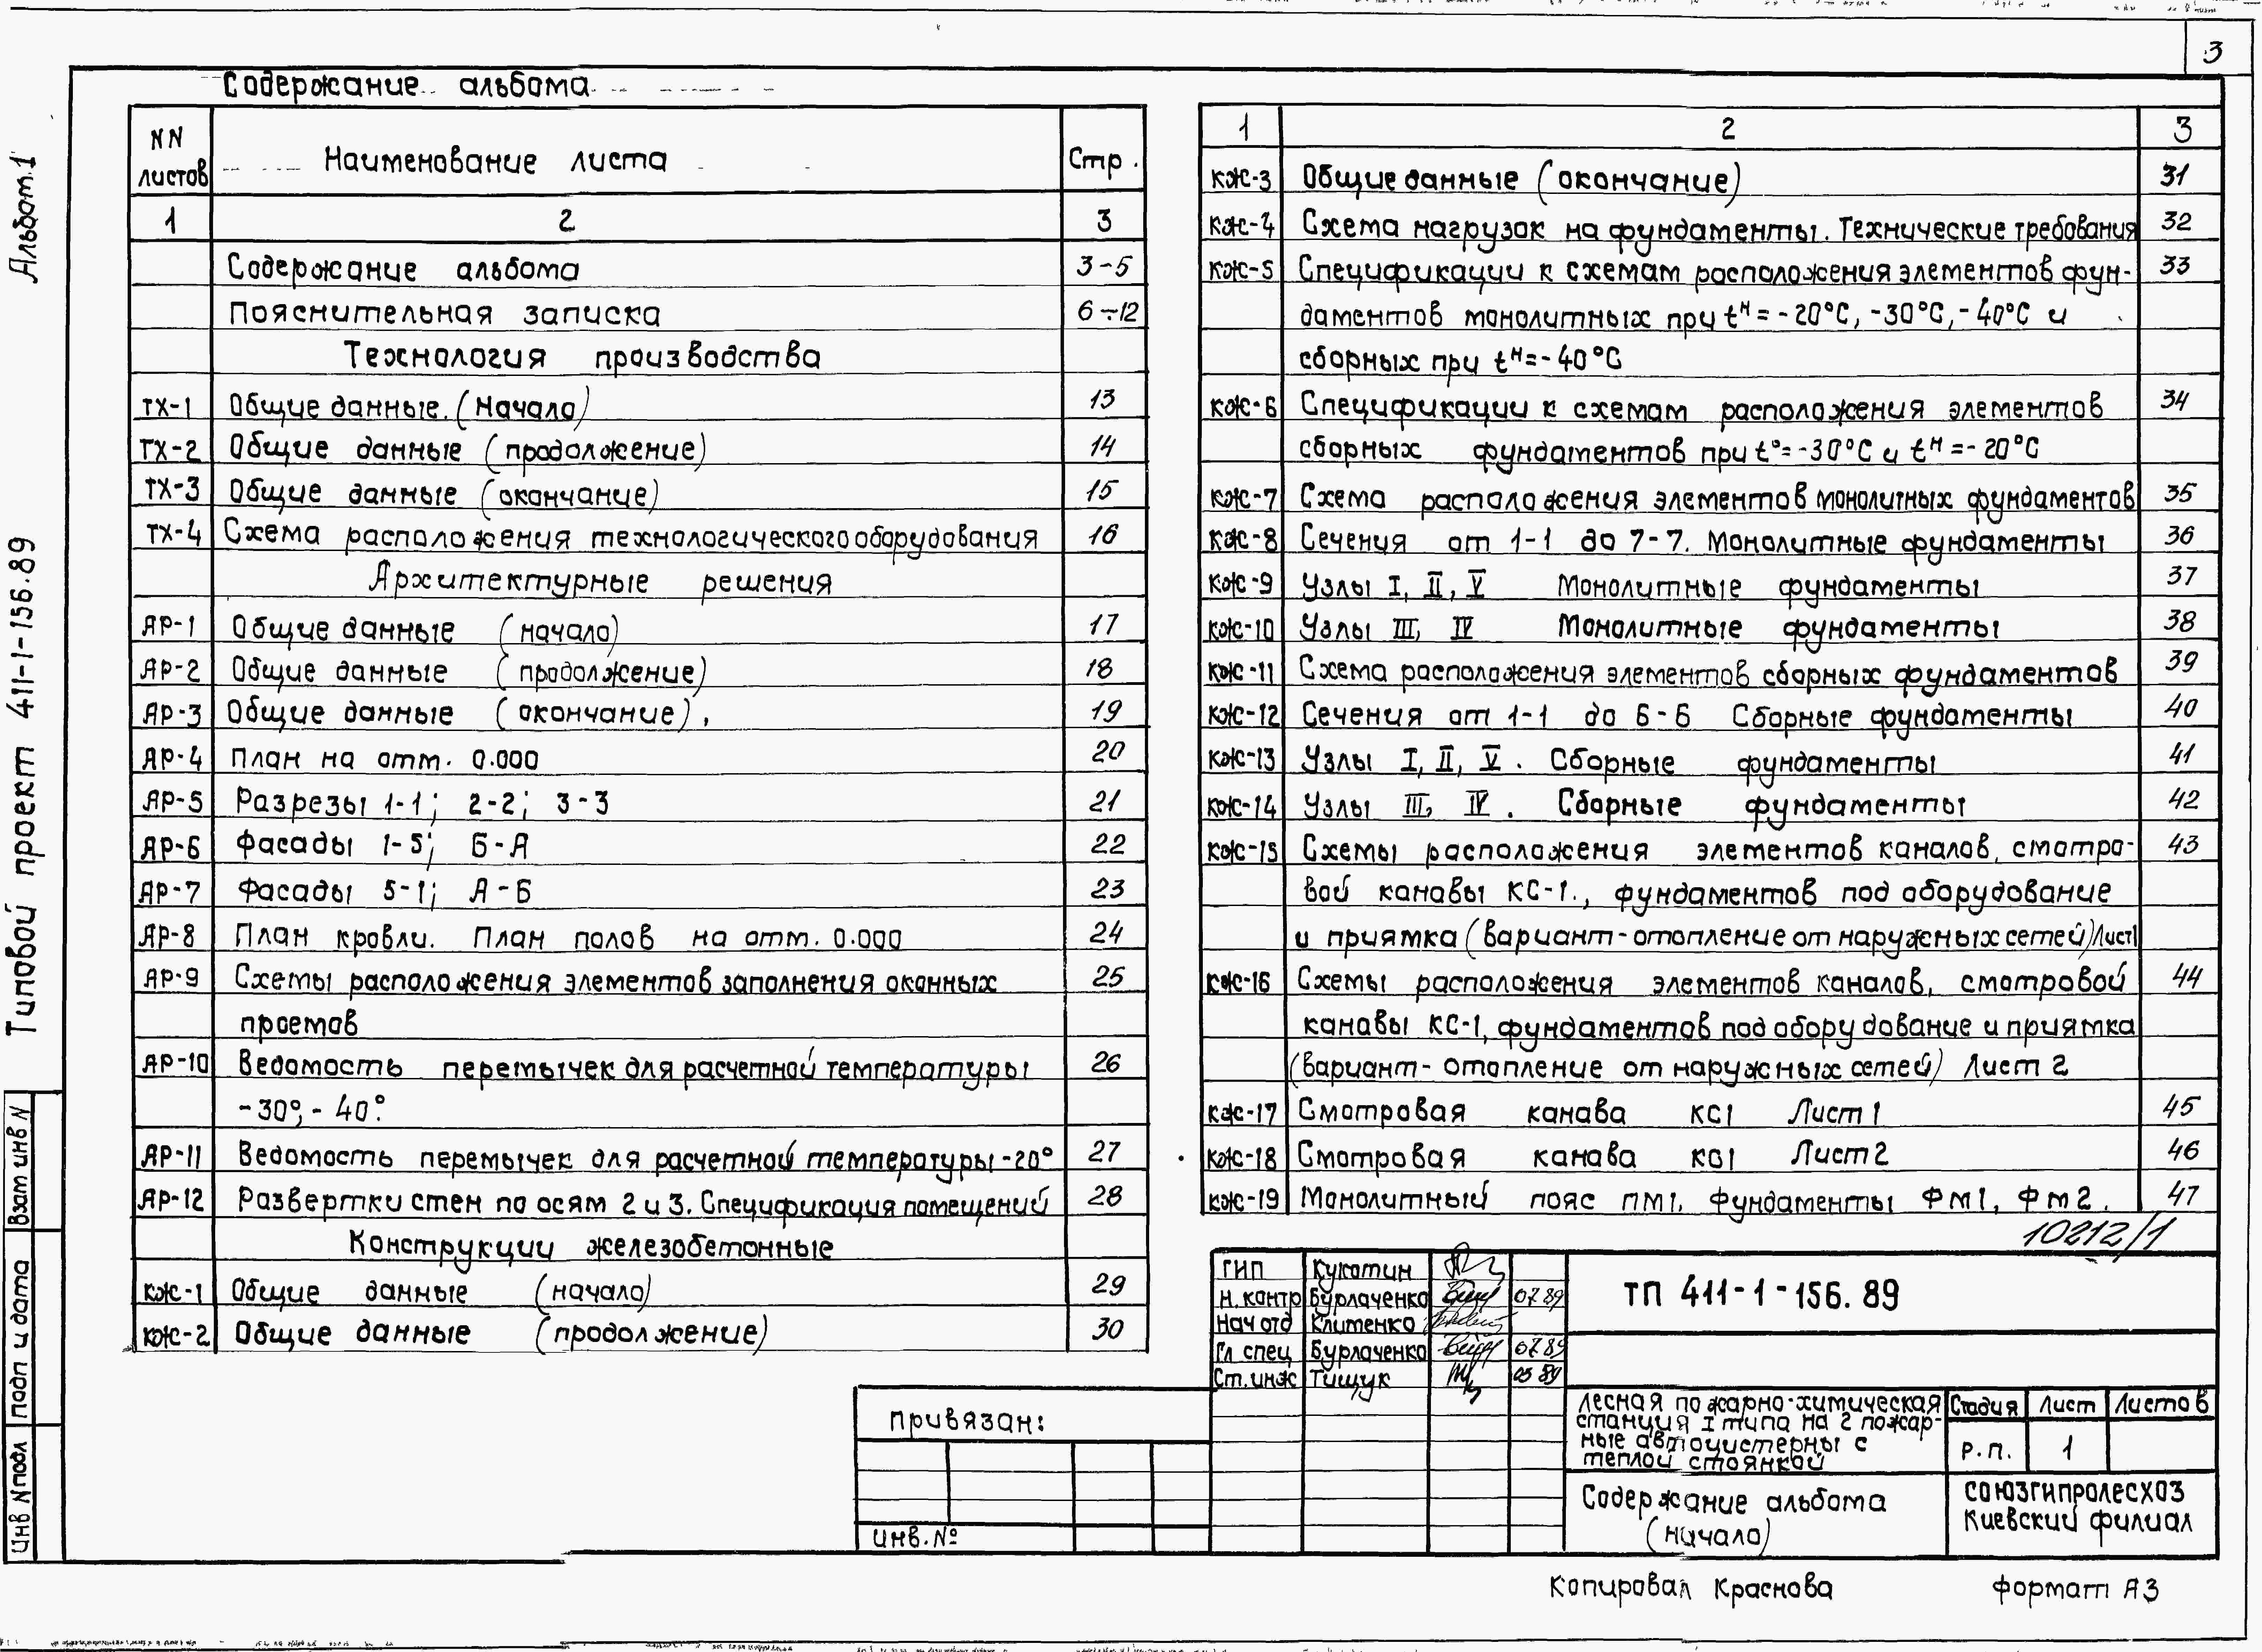 3
Содержание альбома
NN листов Наименование листа Стр.
1 2 3
Содержание альбома 3-5
Пояснительная записка 6÷12
Технология производства
ТХ-1 Общие данные. (начало) 13
ТХ-2 Общие данные (продолжение) 14
ТХ-3 Общие данные (окончание) 15
ТХ-4 Схема расположения технологического оборудования 16
Архитектурные решения
АР-1 Общие данные (начало) 17
АР-2 Общие данные (продолжение) 18
АР-3 Общие данные (окончание). 19
АР-4 План на отм. 0.000 20
АР-5 Разрезы 1-1; 2-2; 3-3 21
АР-6 Фасады 1-5; Б-А 22
АР-7 Фасады 5-1; А-Б 23
АР-8 План кровли. План полов на отм. 0.000 24
АР-9 Схемы расположения элементов заполнения оконных 25
проемов
АР-10 Ведомость перемычек для расчетной температуры 26
-30°, -40°.
АР-11 Ведомость перемычек для расчетной температуры -20° 27
АР-12 Развертки стен по осям 2 и 3. Спецификация помещений 28
Конструкции железобетонные
КЖ-1 Общие данные (начало) 29
КЖ-2 Общие данные (продолжение) 30
1 2 3
КЖ-3 Общие данные (окончание) 31
КЖ-4 Схема нагрузок на фундаменты. Технические требования 32
КЖ-5 Спецификации к схемам расположения элементов фун- 33
даментов монолитных при tᴴ= -20°С, -30°С, -40°С и
сборных при tᴴ= -40°С
КЖ-6 Спецификации к схемам расположения элементов 34
сборных фундаментов при t°= -30°С и tᴴ= -20°С
КЖ-7 Схема расположения элементов монолитных фундаментов 35
КЖ-8 Сечения от 1-1 до 7-7. Монолитные фундаменты 36
КЖ-9 Узлы I, II, V Монолитные фундаменты 37
КЖ-10 Узлы III, IV Монолитные фундаменты 38
КЖ-11 Схема расположения элементов сборных фундаментов 39
КЖ-12 Сечения от 1-1 до 6-6 Сборные фундаменты 40
КЖ-13 Узлы I, II, V. Сборные фундаменты 41
КЖ-14 Узлы III, IV. Сборные фундаменты 42
КЖ-15 Схемы расположения элементов каналов, смотро- 43
вой канавы КС-1., фундаментов под оборудование
и приямка (вариант-отопление от наружных сетей) Лист1
КЖ-16 Схемы расположения элементов каналов, смотровой 44
канавы КС-1, фундаментов под оборудование и приямка
(вариант- отопление от наружных сетей) Лист 2
КЖ-17 Смотровая канава КС1 Лист 1 45
КЖ-18 Смотровая канава КС1 Лист 2 46
КЖ-19 Монолитный пояс ПМ1, Фундаменты ФМ1, ФМ2. 47
10212/1
ГИП Кукотин
Н.контр Бурлаченко 07.89
Нач отд Клитенко
Гл спец Бурлаченко 07.89
Ст.инж Тищук 05 89
ТП 411-1-156.89
Лесная пожарно-химическая
станция I типа на 2 пожар-
ные автоцистерны с
теплой стоянкой
Стадия Лист Листов
Р.П. 1
Содержание альбома
(начало)
СОЮЗГИПРОЛЕСХОЗ
Киевский филиал
Привязан:
Инв.№
Копировал Краснова Формат А3
Альбом.1
Типовой проект 411-1-156.89
Взам инв N
Подп и дата
Инв N подл